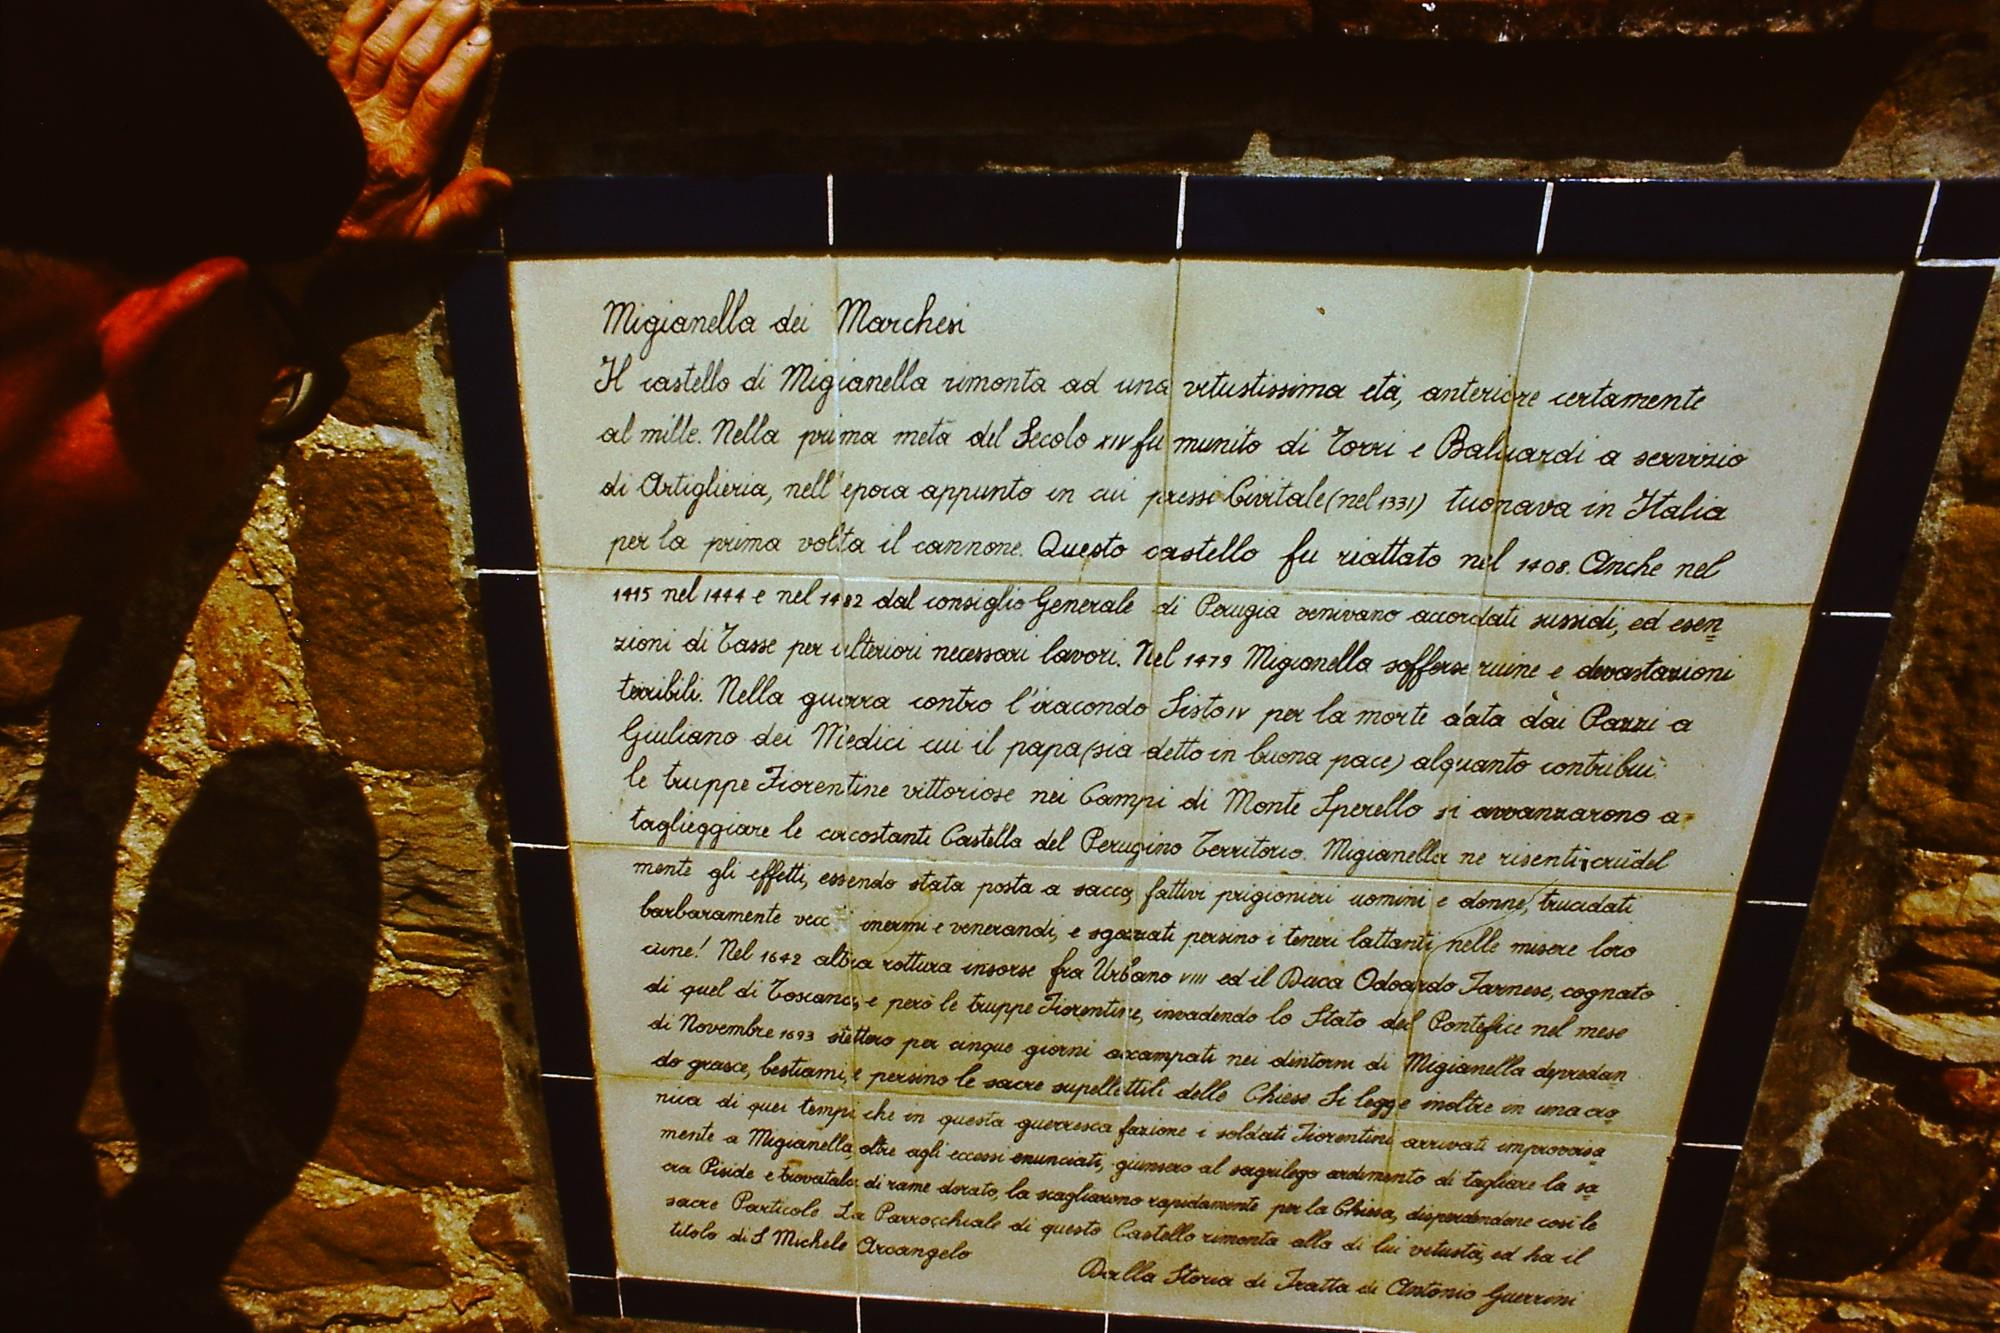 Migianella dei Marchesi
Il castello di Migianella rimonta ad una vetustissima età, anteriore certamente
al mille. Nella prima metà del Secolo XIV fu munito di Torri e Baluardi a servizio
di Artiglieria, nell'epoca appunto in cui pressi Civitale (nel 1331) tuonava in Italia
per la prima volta il cannone. Questo castello fu riattato nel 1408. Anche nel
1415 nel 1444 e nel 1482 dal consiglio Generale di Perugia venivano accordati sussidi, ed esen=
zioni di Tasse per ulteriori necessari lavori. Nel 1479 Migianella sofferse ruine e devastazioni
terribili. Nella guerra contro l'iracondo Sisto IV per la morte data dai Pazzi a
Giuliano dei Medici cui il papa (sia detto in buona pace) alquanto contribuì
le truppe Fiorentine vittoriose nei Campi di Monte Sperello si avvanzarono a
taglieggiare le circostanti Castella del Perugino Territorio. Migianella ne risentì crudel
mente gli effetti, essendo stata posta a sacco, fattivi prigionieri uomini e donne, trucidati
barbaramente inermi e venerandi, e sgozzati persino i teneri lattanti nelle misere loro
cune! Nel 1642 altra rottura insorse fra Urbano VIII ed il Duca Odoardo Farnese, cognato
di quel di Toscana, e però le truppe Fiorentine, invadendo lo Stato del Pontefice nel mese
di Novembre 1693 stettero per cinque giorni accampati nei dintorni di Migianella depredan=
do grasce, bestiami, e persino le sacre supellettili delle Chiese. Si legge inoltre in una cro=
nica di quei tempi che in questa guerresca fazione i soldati Fiorentini arrivati improvvisa=
mente a Migianella, oltre agli eccessi enunciati, giunsero al sagrilego ardimento di tagliare la sa=
cra Piside e trovatala di rame dorato, la scagliarono rapidamente per la Chiesa, disperdendone così le
sacre Particole. La Parrocchiale di questo Castello rimonta alla di lui vetustà, ed ha il
titolo di S Michele Arcangelo
Dalla Storia di Fratta di Antonio Guerrini